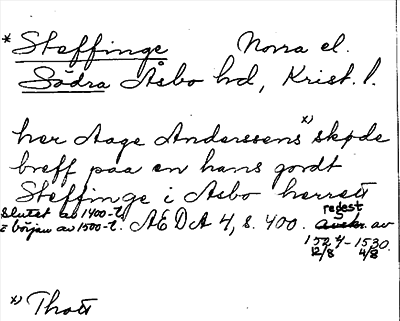 * Steffinge Norra el.
Södra Åsbo hd, Krist. l.
her Aage Anderssens x) skøde
breff paa en hans gordt
Steffinge i Asbo herrett
slutet av 1400-t.
= början av 1500-t. AEDA 4, s. 400. regest av
1524-1530.
12/8 4/8
x) Thott